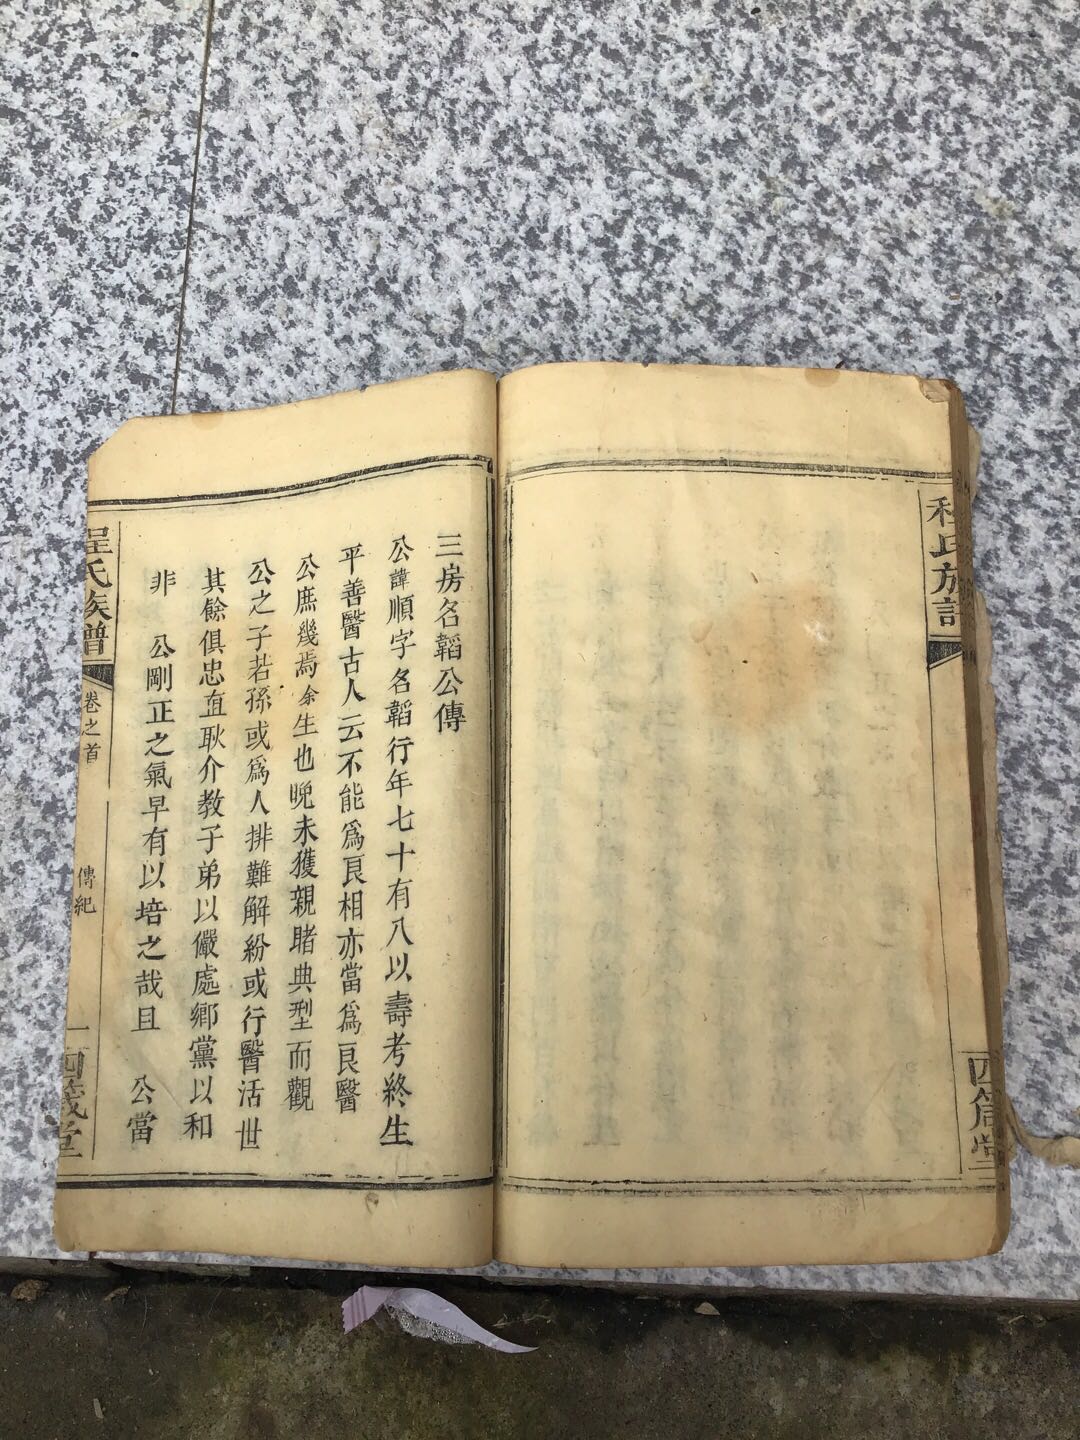 程氏族譜
四箴堂
三房名韜公傳
公諱順字名韜行年七十有八以壽考終生
平善醫古人云不能為良相亦當為良醫
公庶幾焉余生也晚未獲親睹典型而觀
公之子若孫或為人排難解紛或行醫活世
其餘俱忠直耿介教子弟以儼處鄉黨以和
非 公剛正之氣早有以培之哉且 公當
程氏族譜
卷之首
傳紀
一
四箴堂